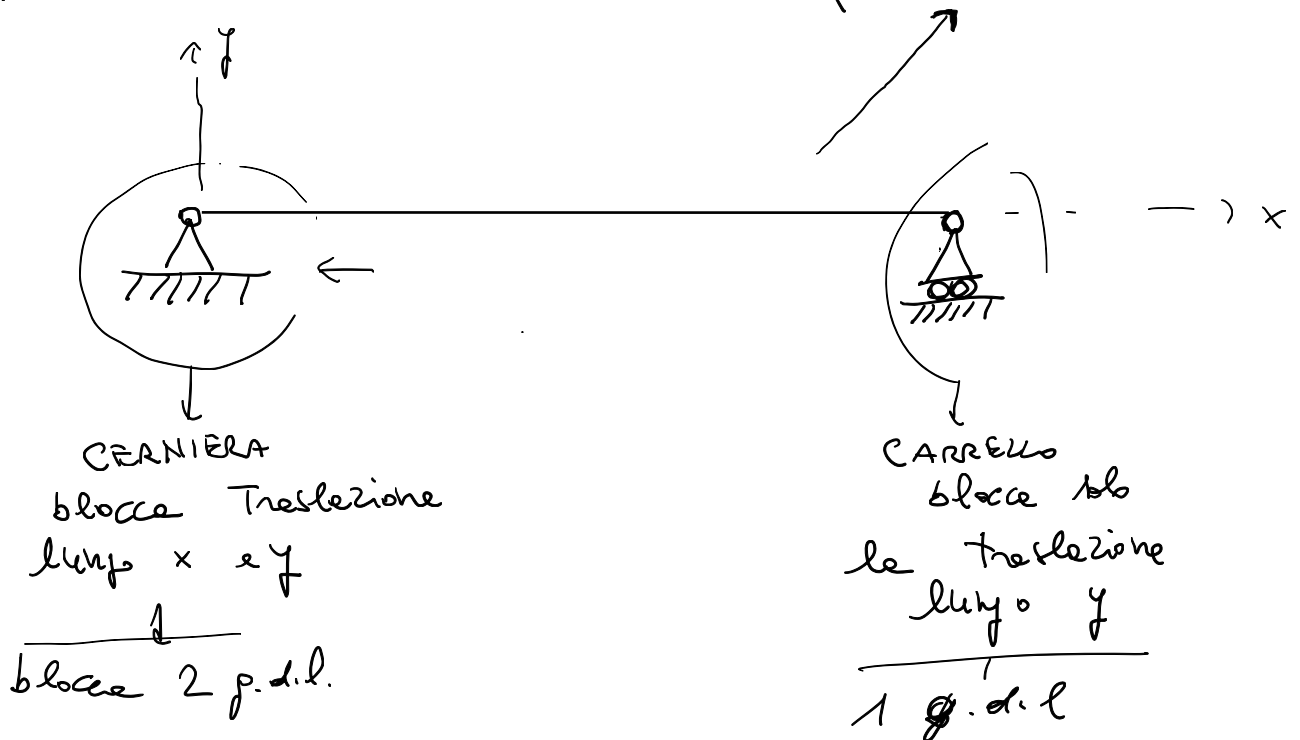 y
x
CERNIERA
blocca Traslazione
lungo x e y
blocca 2 g.d.l.
CARRELLO
blocca solo
la traslazione
lungo y
1 g.d.l